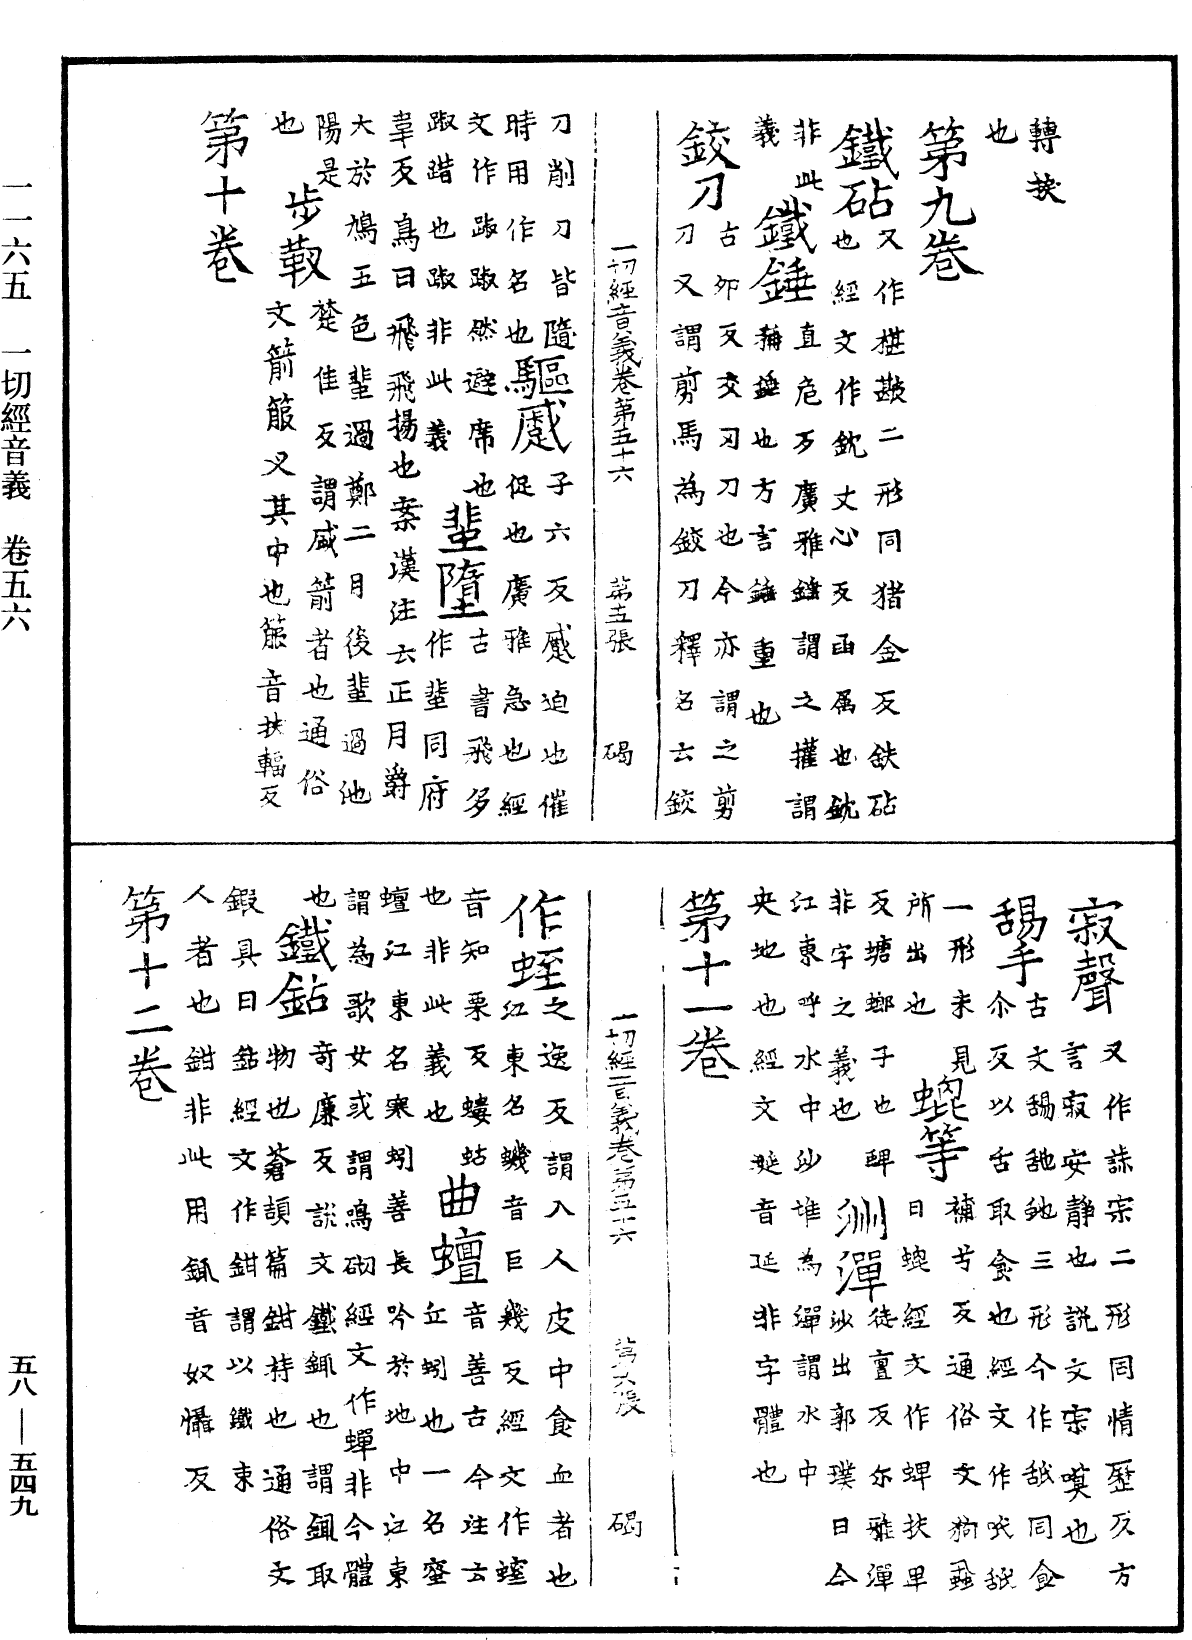 轉挾
也
第九卷
鐵砧
又作椹㪛二形同猪金反鈇砧
也經文作鈂丈心反臿属也鈂
非此
義
鐵錘
直危反廣雅錘謂之權謂
稱錘也方言錘重也
鉸刀
古夘反交刃刀也今亦謂之剪
刀又謂剪馬為鉸刀釋名云鉸
一切經音義卷第五十六 第五張 碣
刀削刀皆隨
時用作名也
驅蹙
子六反蹙迫也催
促也廣雅急也經
文作踧踧然避席也
踧踖也踧非此義
蜚墮
古書飛多
作蜚同府
韋反鳥曰飛飛揚也案漢注云正月爵
大於鳩五色蜚過鄭二月後蜚過池
陽是
也
步靫
楚佳反謂咸箭者也通俗
文箭箙叉其中也箙音扶輻反
第十卷
寂聲
又作諔宗二形同情歷反方
言寂安靜也說文宗嘆也
舓手
古文舓䑛𦧇三形今作舐同食
尒反以舌取食也經文作㕧舐
一形未見
所出也
蜫等
補兮反通俗文狗蝨
曰螕經文作蜱扶卑
反螗螂子也蜱
非字之義也
洲潬
徒亶反尒雅潬
沙出郭璞曰今
江東呼水中沙堆為潬謂水中
央地也經文埏音延非字體也
第十一卷
一切經音義卷第五十六 第六張 碣
作蛭
之逸反謂入人皮中食血者也
江東名蟣音巨幾反經文作螲
音知栗反螻蛄
也非此義也
曲蟺
音善古今注云
丘蚓也一名蜜
蟺江東名寒蚓善長吟於地中江東
謂為歌女或謂鳴砌經文作蟬非今體
也
鐵鉆
奇廉反說文鐵鋷也謂鋷取
物也蒼頡篇鉗持也通俗文
鍛具曰鉆經文作鉗謂以鐵束
人者也鉗非此用鋷音奴懾反
第十二卷
一一六五 一切經音義 卷五六
五八—五四九